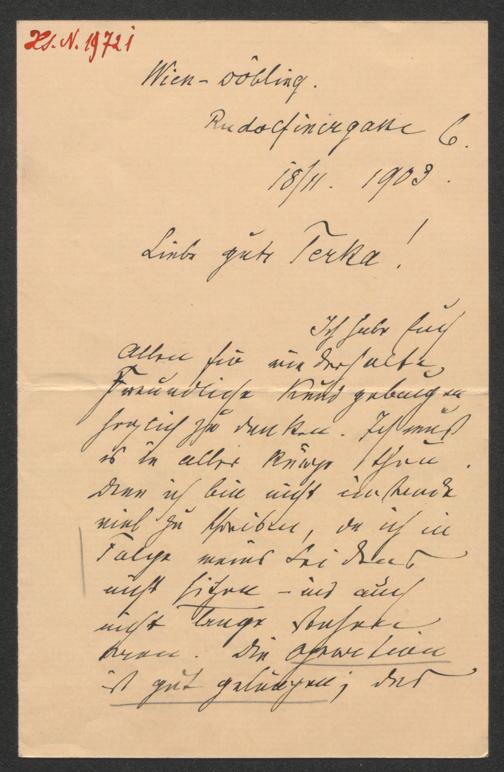 Hs. N. 19721
Wien-Döbling.
Rudolfinergasse 6.
18/11. 1903.
Liebe gute Terka!
Ich habe Euch
Allen für wiederholte
Freundliche Kundgebungen
herzlich zu danken. Ich muß
es in aller Kürze thun.
Denn ich bin nicht imstande
viel zu schreiben, da ich in
Folge meines Leidens
nicht sitzen – und auch
nicht lange stehen
kann. Die Operation
ist gut gelungen; das